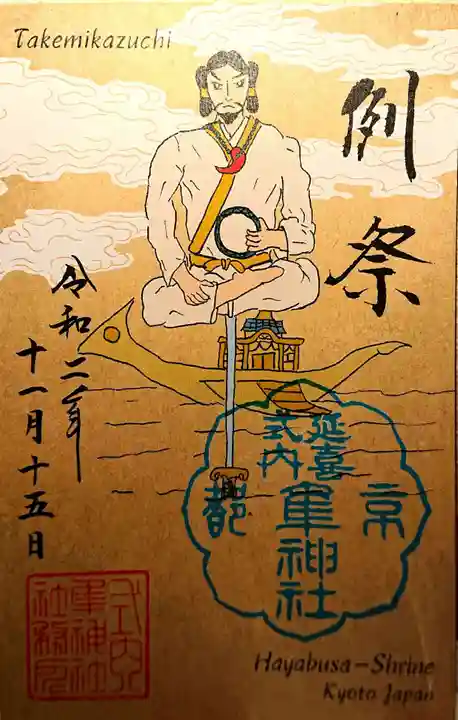 Takemikazuchi
例祭
令和二年
十一月十五日
延喜
式内
隼神社
京都
式内
隼神社
Hayabusa-Shrine
Kyoto Japan